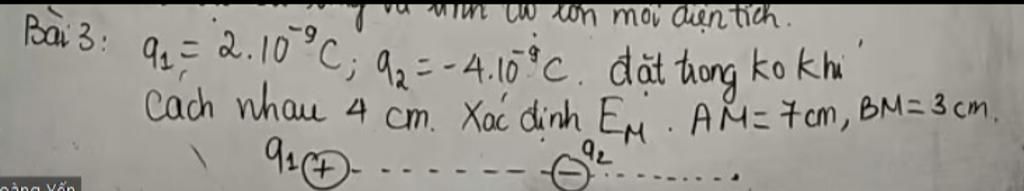 và tính độ lớn mỗi điện tích.
Bài 3: q₁ = 2.10⁻⁹C; q₂ = -4.10⁻⁹C. đặt trong ko khí
Cách nhau 4 cm. Xác định E_M. AM = 7cm, BM = 3cm.
q₁ (+) - - - - - - - (-) q₂ . . . . . . .